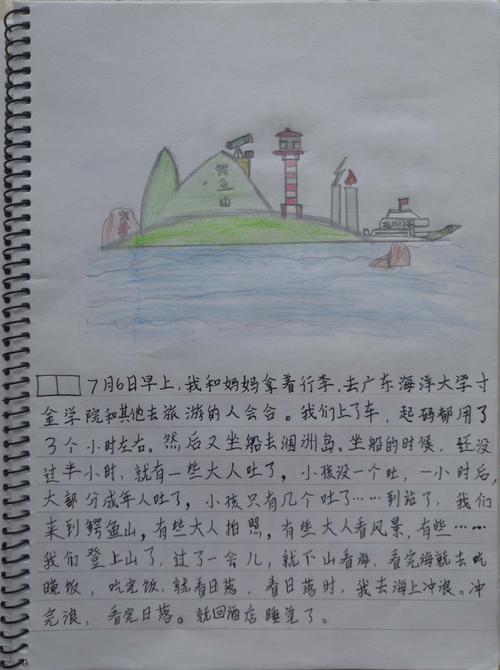 鳄鱼山
7月6日早上，我和妈妈拿着行李，去广东海洋大学寸
金学院和其他去旅游的人会合。我们上了车，起码都用了
3个小时左右。然后又坐船去涠洲岛。坐船的时候，还没
过半小时，就有一些大人吐了，小孩没一个吐，一小时后，
大部分成年人吐了，小孩只有几个吐了……到站了，我们
来到鳄鱼山，有些大人拍照，有些大人看风景，有些……
我们登上山了，过了一会儿，就下山看海，看完海就去吃
晚饭，吃完饭，就看日落，看日落时，我去海上冲浪。冲
完浪，看完日落。就回酒店睡觉了。